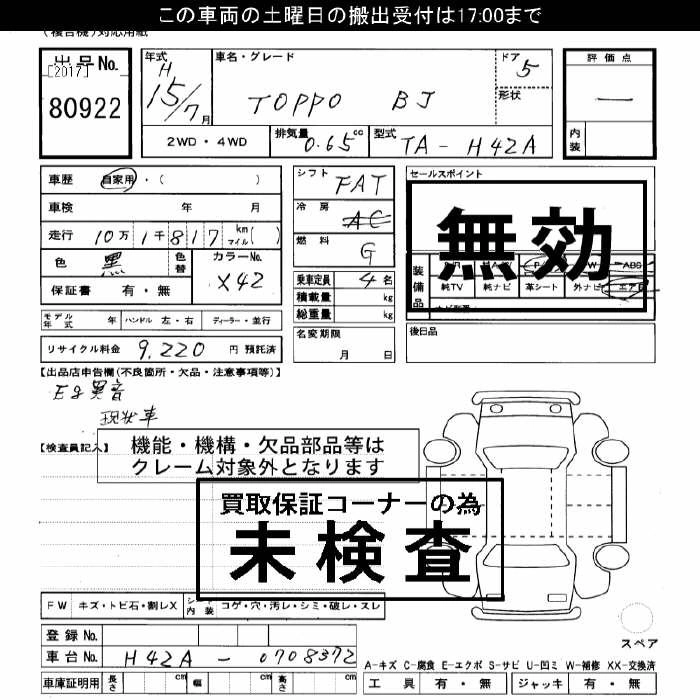 この車両の土曜日の搬出受付は17:00まで
(複合機)対応用紙
出品No. [2017] 80922
年式 H 15/7月
車名・グレード TOPPO BJ
ドア 5
形状
評価点 —
内装
2WD・4WD
排気量 0.65cc
型式 TA-H42A
車歴 自家用・( )
車検 年 月
走行 10万1千817 km マイル( )
色 黒 色替 カラーNo. X42
保証書 有・無
シフト FAT
冷房 AC
燃料 G
乗車定員 4名
積載量 kg
総重量 kg
セールスポイント
無効
装備品 ABS
純TV 純ナビ 革シート 外ナビ エアB
モデル年式 年 ハンドル 左・右 ディーラー・並行
名変期限 月 日
後日品
リサイクル料金 9,220 円 預託済
【出品店申告欄(不良箇所・欠品・注意事項等)】
Eg異音
現状車
【検査員記入】
機能・機構・欠品部品等は
クレーム対象外となります
買取保証コーナーの為
未検査
FW キズ・トビ石・割レX シート内装 コゲ・穴・汚レ・シミ・破レ・スレ
スペア
登録No.
車台No. H42A-0708372
A-キズ C-腐食 E-エクボ S-サビ U-凹ミ W-補修 XX-交換済
車庫証明用 長さ cm 幅 cm 高さ cm
工具 有・無 ジャッキ 有・無